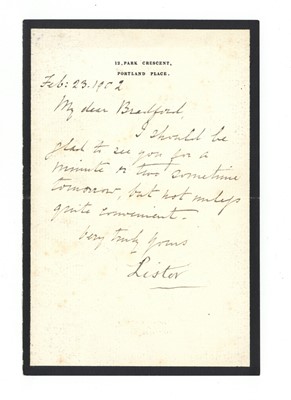 12, PARK CRESCENT,
PORTLAND PLACE.
Feb: 23. 1902
My dear Bradford,
I should be
glad to see you for a
minute or two sometime
tomorrow, but not unless
quite convenient.
Very truly yours
Lister